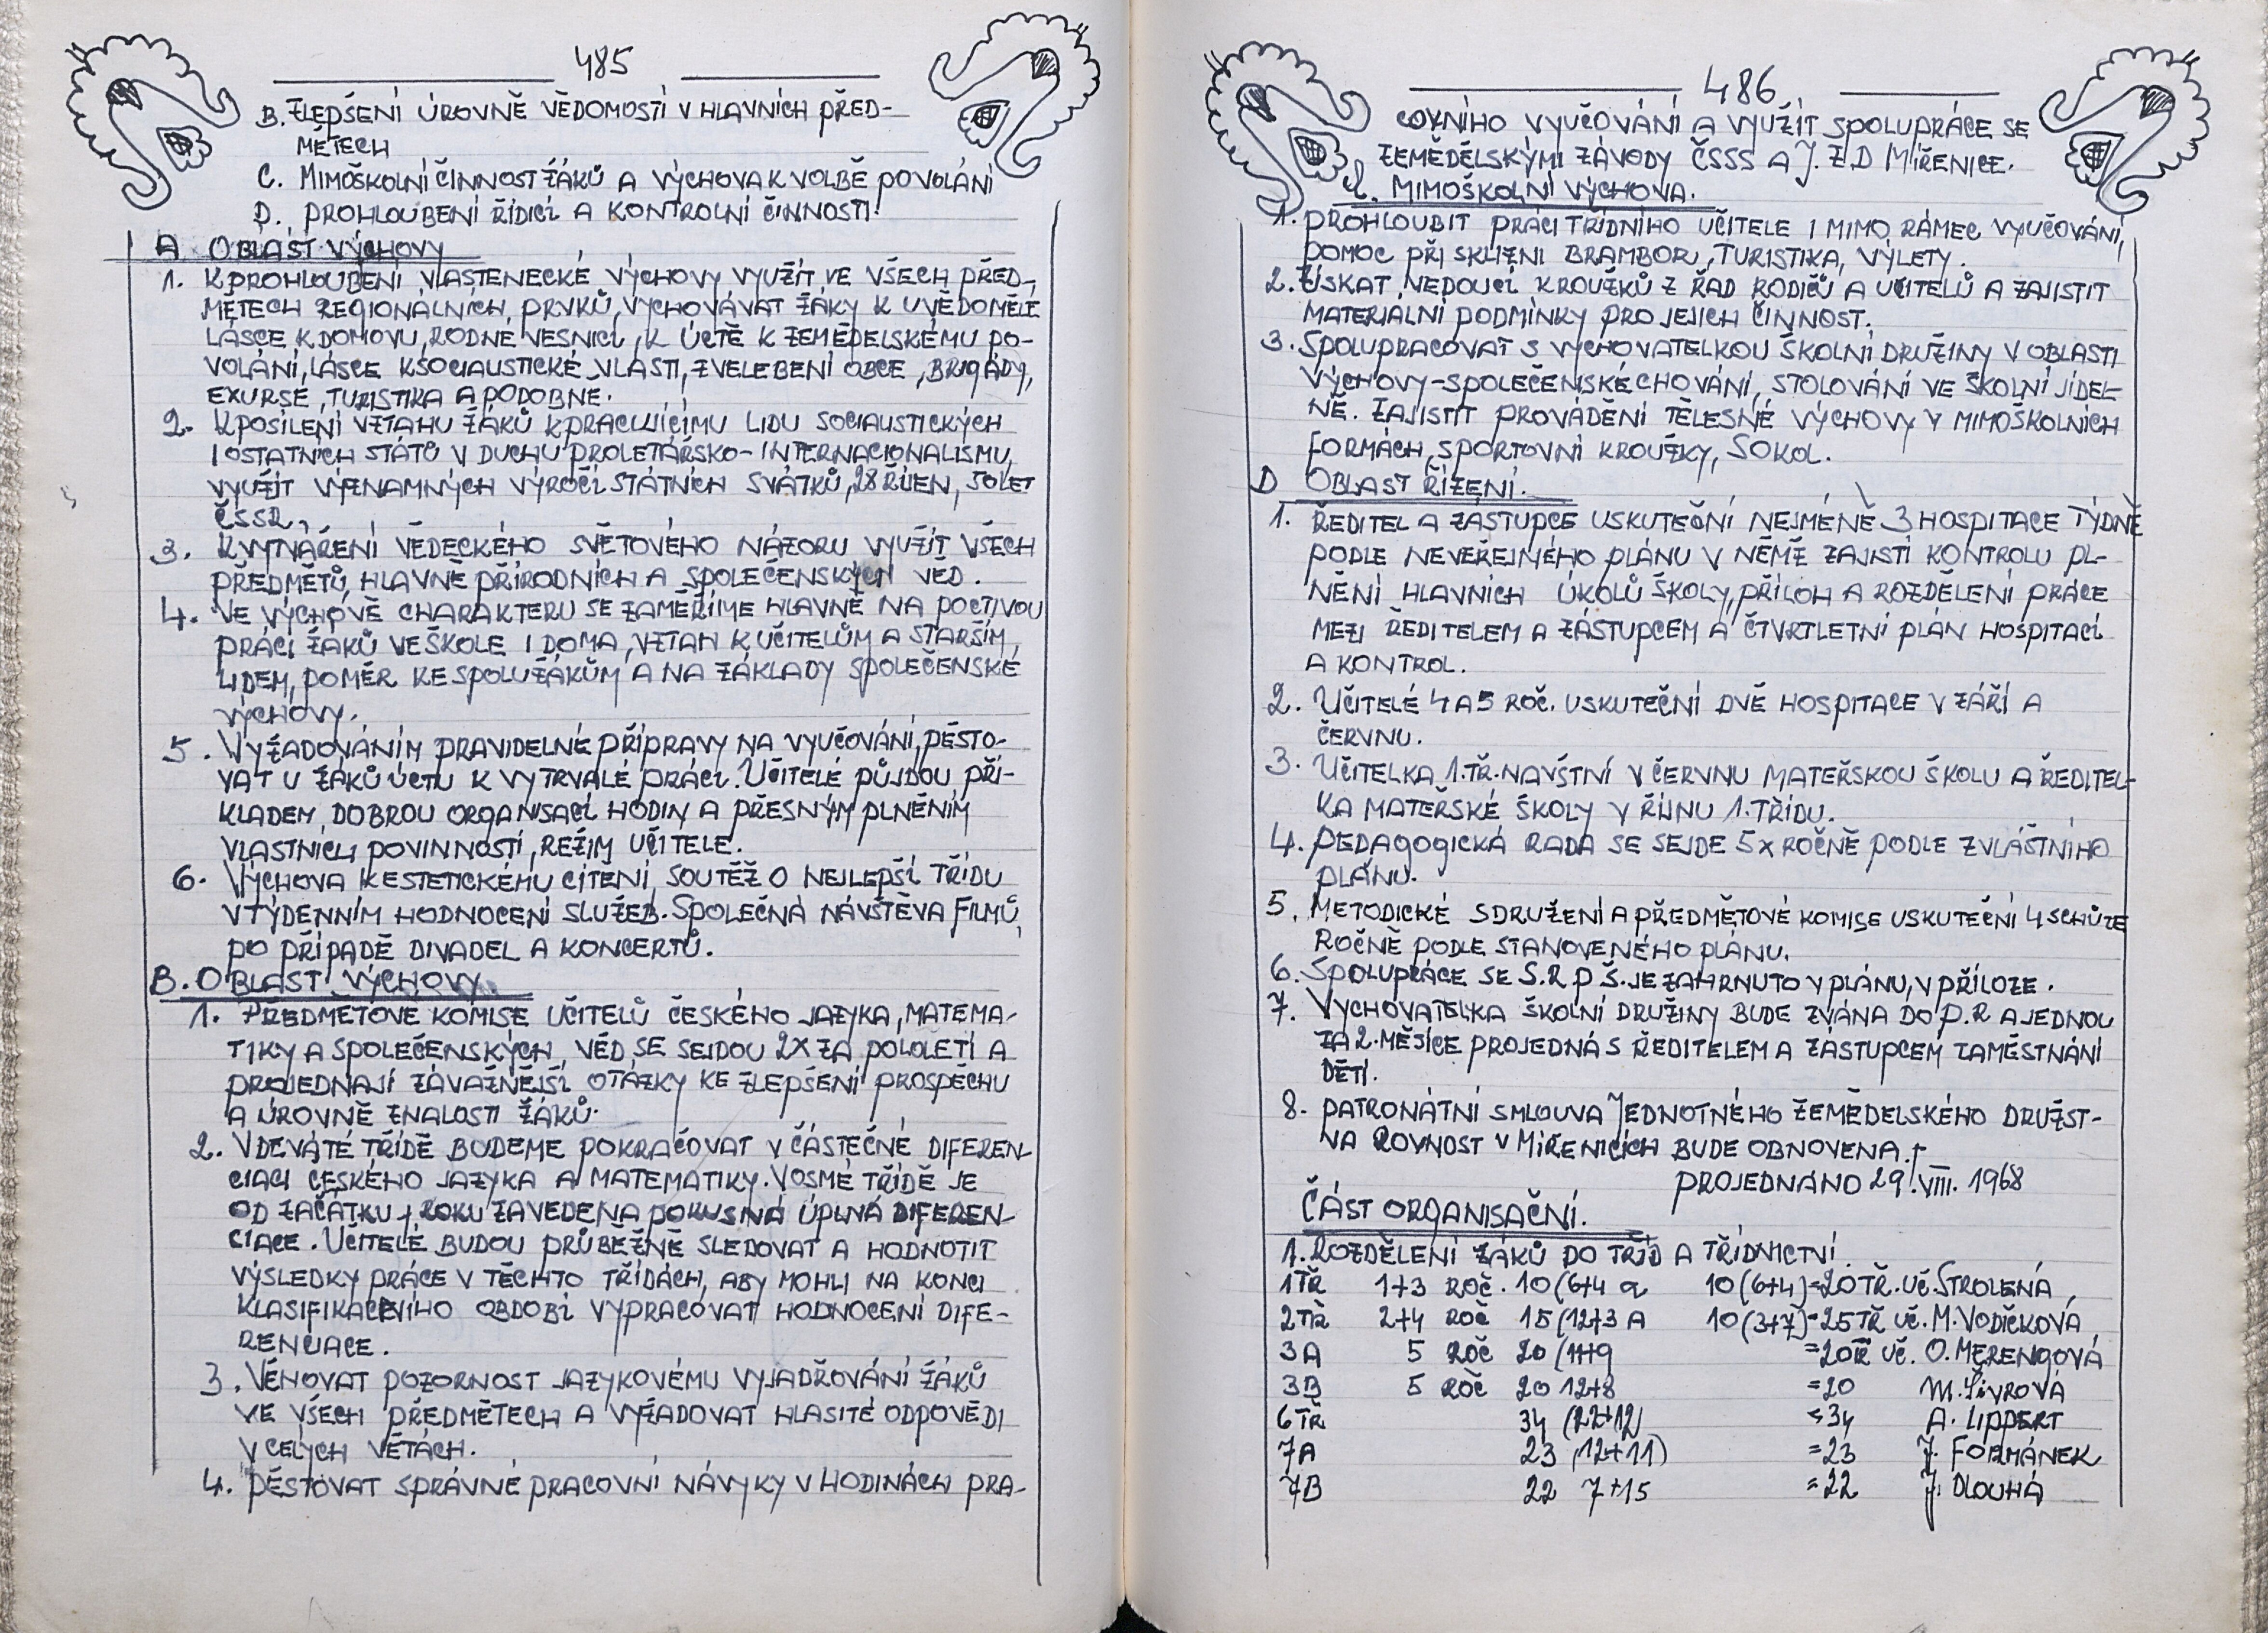 485
B. ZLEPŠENÍ ÚROVNĚ VĚDOMOSTÍ V HLAVNÍCH PŘED-
MĚTECH
C. MIMOŠKOLNÍ ČINNOST ŽÁKŮ A VÝCHOVA K VOLBĚ POVOLÁNÍ
D. PROHLOUBENÍ ŘÍDICÍ A KONTROLNÍ ČINNOSTI.
A OBLAST VÝCHOVY
1. K PROHLOUBENÍ VLASTENECKÉ VÝCHOVY VYUŽÍT VE VŠECH PŘED-
MĚTECH REGIONÁLNÍCH PRVKŮ, VYCHOVÁVAT ŽÁKY K UVĚDOMĚLÉ
LÁSCE K DOMOVU, RODNÉ VESNICI, K ÚCTĚ K ZEMĚDELSKÉMU PO-
VOLÁNÍ, LÁSCE K SOCIALISTICKÉ VLASTI, ZVELEBENÍ OBCE, BRIGÁDY,
EXURSE, TURISTIKA A PODOBNĚ.
2. K POSÍLENÍ VZTAHU ŽÁKŮ K PRACUJÍCÍMU LIDU SOCIALISTICKÝCH
I OSTATNÍCH STÁTŮ V DUCHU PROLETÁŘSKO-INTERNACIONALISMU,
VYUŽÍT VÝZNAMNÝCH VÝROČÍ STÁTNÍCH SVÁTKŮ, 28 ŘÍJEN, 50 LET
ČSSR,
3. K VYTVÁŘENÍ VĚDECKÉHO SVĚTOVÉHO NÁZORU VYUŽÍT VŠECH
PŘEDMĚTŮ, HLAVNĚ PŘÍRODNÍCH A SPOLEČENSKÝCH VĚD.
4. VE VÝCHOVĚ CHARAKTERU SE ZAMĚŘÍME HLAVNĚ NA POCTIVOU
PRÁCI ŽÁKŮ VE ŠKOLE I DOMA, VZTAH K UČITELŮM A STARŠÍM,
LIDEM, POMĚR KE SPOLUŽÁKŮM A NA ZÁKLADY SPOLEČENSKÉ
VÝCHOVY.
5. VYŽADOVÁNÍM PRAVIDELNÉ PŘÍPRAVY NA VYUČOVÁNÍ, PĚSTO-
VAT U ŽÁKŮ ÚCTU K VYTRVALÉ PRÁCI. UČITELÉ PŮJDOU PŘÍ-
KLADEM, DOBROU ORGANISACÍ HODIN A PŘESNÝM PLNĚNÍM
VLASTNÍCH POVINNOSTÍ, REŽIM UČITELE.
6. VÝCHOVA K ESTETICKÉMU CÍTĚNÍ, SOUTĚŽ O NEJLEPŠÍ TŘÍDU
V TÝDENNÍM HODNOCENÍ SLUŽEB. SPOLEČNÁ NÁVŠTĚVA FILMŮ,
PO PŘÍPADĚ DIVADEL A KONCERTŮ.
B. OBLAST VÝCHOVY.
1. PŘEDMĚTOVÉ KOMISE UČITELŮ ČESKÉHO JAZYKA, MATEMA-
TIKY A SPOLEČENSKÝCH VĚD SE SEJDOU 2X ZA POLOLETÍ A
PROJEDNAJÍ ZÁVAŽNĚJŠÍ OTÁZKY KE ZLEPŠENÍ PROSPĚCHU
A ÚROVNĚ ZNALOSTI ŽÁKŮ.
2. V DEVÁTÉ TŘÍDĚ BUDEME POKRAČOVAT V ČÁSTEČNÉ DIFEREN-
CIACI ČESKÉHO JAZYKA A MATEMATIKY. V OSMÉ TŘÍDĚ JE
OD ZAČÁTKU ROKU ZAVEDENA POKUSNÁ ÚPLNÁ DIFEREN-
CIACE. UČITELÉ BUDOU PRŮBĚŽNĚ SLEDOVAT A HODNOTIT
VÝSLEDKY PRÁCE V TĚCHTO TŘÍDÁCH, ABY MOHLI NA KONCI
KLASIFIKAČNÍHO OBDOBÍ VYPRACOVAT HODNOCENÍ DIFE-
RENCIACE.
3. VĚNOVAT POZORNOST JAZYKOVÉMU VYJADŘOVÁNÍ ŽÁKŮ
VE VŠECH PŘEDMĚTECH A VYŽADOVAT HLASITÉ ODPOVĚDI
V CELÝCH VĚTÁCH.
4. PĚSTOVAT SPRÁVNÉ PRACOVNÍ NÁVYKY V HODINÁCH PRA-
486
COVNÍHO VYUČOVÁNÍ A VYUŽÍT SPOLUPRÁCE SE
ZEMĚDĚLSKÝMI ZÁVODY ČSSS A J.Z.D MIŘENICE.
C. MIMOŠKOLNÍ VÝCHOVA.
1. PROHLOUBIT PRÁCI TŘÍDNÍHO UČITELE I MIMO RÁMEC VYUČOVÁNÍ,
POMOC PŘI SKLIZNI BRAMBOR, TURISTIKA, VÝLETY.
2. ZÍSKAT VEDOUCÍ KROUŽKŮ Z ŘAD RODIČŮ A UČITELŮ A ZAJISTIT
MATERIÁLNÍ PODMÍNKY PRO JEJICH ČINNOST.
3. SPOLUPRACOVAT S VYCHOVATELKOU ŠKOLNÍ DRUŽINY V OBLASTI
VÝCHOVY-SPOLEČENSKÉ CHOVÁNÍ, STOLOVÁNÍ VE ŠKOLNÍ JÍDEL-
NĚ. ZAJISTIT PROVÁDĚNÍ TĚLESNÉ VÝCHOVY V MIMOŠKOLNÍCH
FORMÁCH, SPORTOVNÍ KROUŽKY, SOKOL.
D OBLAST ŘÍZENÍ.
1. ŘEDITEL A ZÁSTUPCE USKUTEČNÍ NEJMÉNĚ 3 HOSPITACE TÝDNĚ
PODLE NEVEŘEJNÉHO PLÁNU V NĚMŽ ZAJISTÍ KONTROLU PL-
NĚNÍ HLAVNÍCH ÚKOLŮ ŠKOLY, PŘÍLOH A ROZDĚLENÍ PRÁCE
MEZI ŘEDITELEM A ZÁSTUPCEM A ČTVRTLETNÍ PLÁN HOSPITACÍ
A KONTROL.
2. UČITELÉ 4 A 5 ROČ. USKUTEČNÍ DVĚ HOSPITACE V ZÁŘÍ A
ČERVNU.
3. UČITELKA 1.TŘ. NAVŠTNÍ V ČERVNU MATEŘSKOU ŠKOLU A ŘEDITEL-
KA MATEŘSKÉ ŠKOLY V ŘÍJNU 1. TŘÍDU.
4. PEDAGOGICKÁ RADA SE SEJDE 5X ROČNĚ PODLE ZVLÁŠTNÍHO
PLÁNU.
5. METODICKÉ SDRUŽENÍ A PŘEDMĚTOVÉ KOMISE USKUTEČNÍ 4 SCHŮZE
ROČNĚ PODLE STANOVENÉHO PLÁNU.
6. SPOLUPRÁCE SE S.R.P.Š. JE ZAHRNUTO V PLÁNU, V PŘÍLOZE.
7. VYCHOVATELKA ŠKOLNÍ DRUŽINY BUDE ZVÁNA DO P.R A JEDNOU
ZA 2. MĚSÍCE PROJEDNÁ S ŘEDITELEM A ZÁSTUPCEM ZAMĚSTNÁNÍ
DĚTÍ.
8. PATRONÁTNÍ SMLOUVA JEDNOTNÉHO ZEMĚDELSKÉHO DRUŽST-
VA ROVNOST V MIŘENICÍCH BUDE OBNOVENA.
PROJEDNÁNO 29. VIII. 1968
ČÁST ORGANISAČNÍ.
1. ROZDĚLENÍ ŽÁKŮ DO TŘÍD A TŘÍDNICTVÍ
1 TŘ 1+3 ROČ. 10 (6+4 a 10 (6+4) = 20 TŘ. UČ. STROLENÁ,
2 TŘ 2+4 ROČ 15 (12+3 A 10 (3+7) = 25 TŘ UČ. M. VODIČKOVÁ,
3A 5 ROČ 20 (11+9 = 20 TŘ UČ. O. MERENGOVÁ
3B 5 ROČ 20 12+8 = 20 M. SÍVROVÁ
6 TŘ 34 (22+12) = 34 A. LIPPERT
7A 23 (12+11) = 23 J. FORMÁNEK
7B 22 7+15 = 22 J. DLOUHÁ